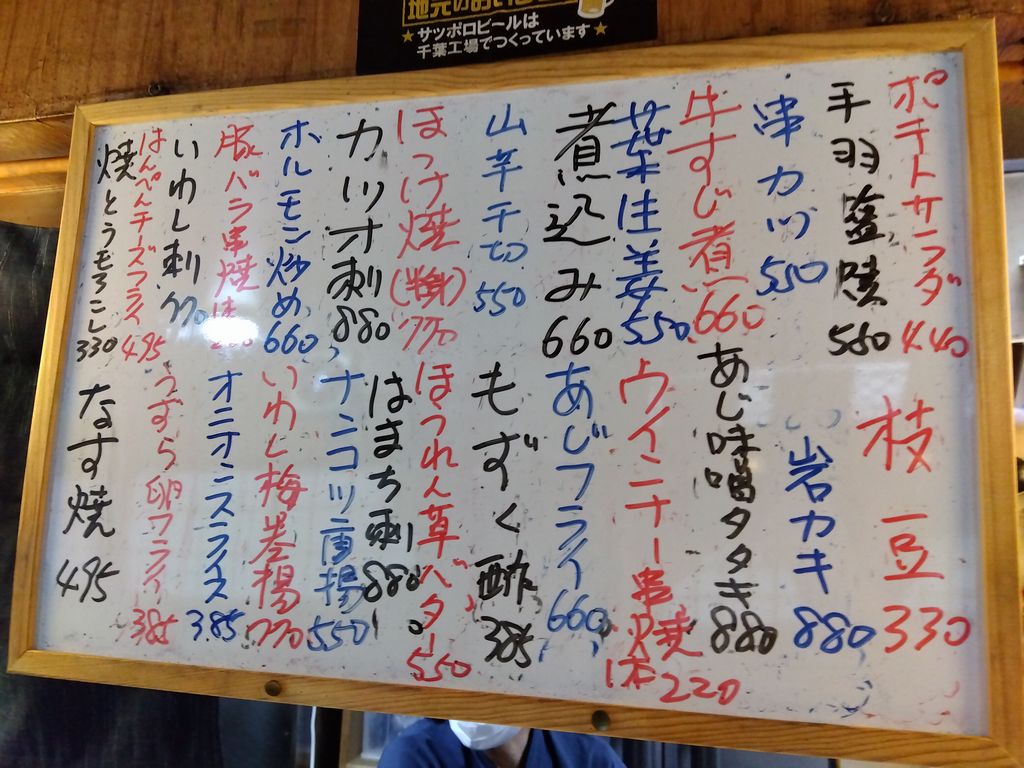 サッポロビールは
千葉工場でつくっています
ポテトサラダ 440
手羽塩焼 550
串カツ 550
牛すじ煮 660
葉生姜 550
煮込み 660
山芋千切 550
ほっけ焼(半身) 770
カツオ刺 880
ホルモン炒め 660
豚バラ串焼
いわし刺 770
はんぺんチーズフライ 495
焼とうもろこし 330
枝豆 330
岩カキ 880
あじ味噌タタキ 880
ウインナー串焼 1本 220
あじフライ 660
もずく酢 385
ほうれん草バター 550
はまち刺 880
ナンコツ唐揚 550
いわし梅巻揚 770
オニオンスライス 385
うずら卵フライ 385
なす焼 495